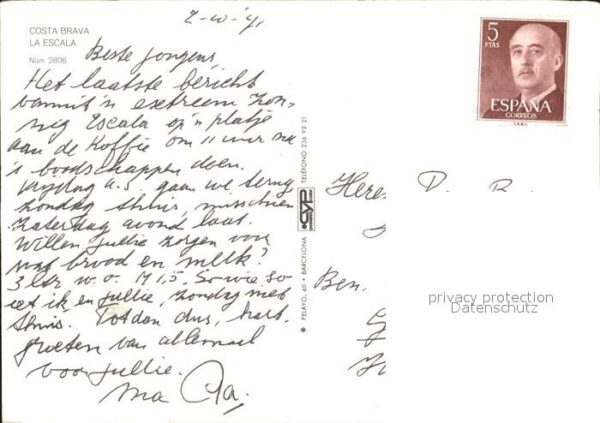 COSTA BRAVA
LA ESCALA
Núm. 2806
Beste jongens,
Het laatste bericht
vanuit 'n extreem zon-
nig Escala op 'n platje
aan de koffie om 11 uur na
's boodschappen doen.
Vrijdag a.s. gaan we terug
zondag thuis, misschien
zaterdag avond laat.
Willen jullie zorgen voor
wat brood en melk?
3 ltr w.o. M 1,5. Sowieso
eet ik en jullie, zondag met
thuis. Tot dan dus, hart.
groeten van allemaal
voor jullie.
Ma Pa.
5
PTAS
ESPAÑA
CORREOS
PELAYO, 60 • BARCELONA
CYP
TELÉFONO 236 92 21
Heren
D. R.
Ben.
privacy protection
Datenschutz